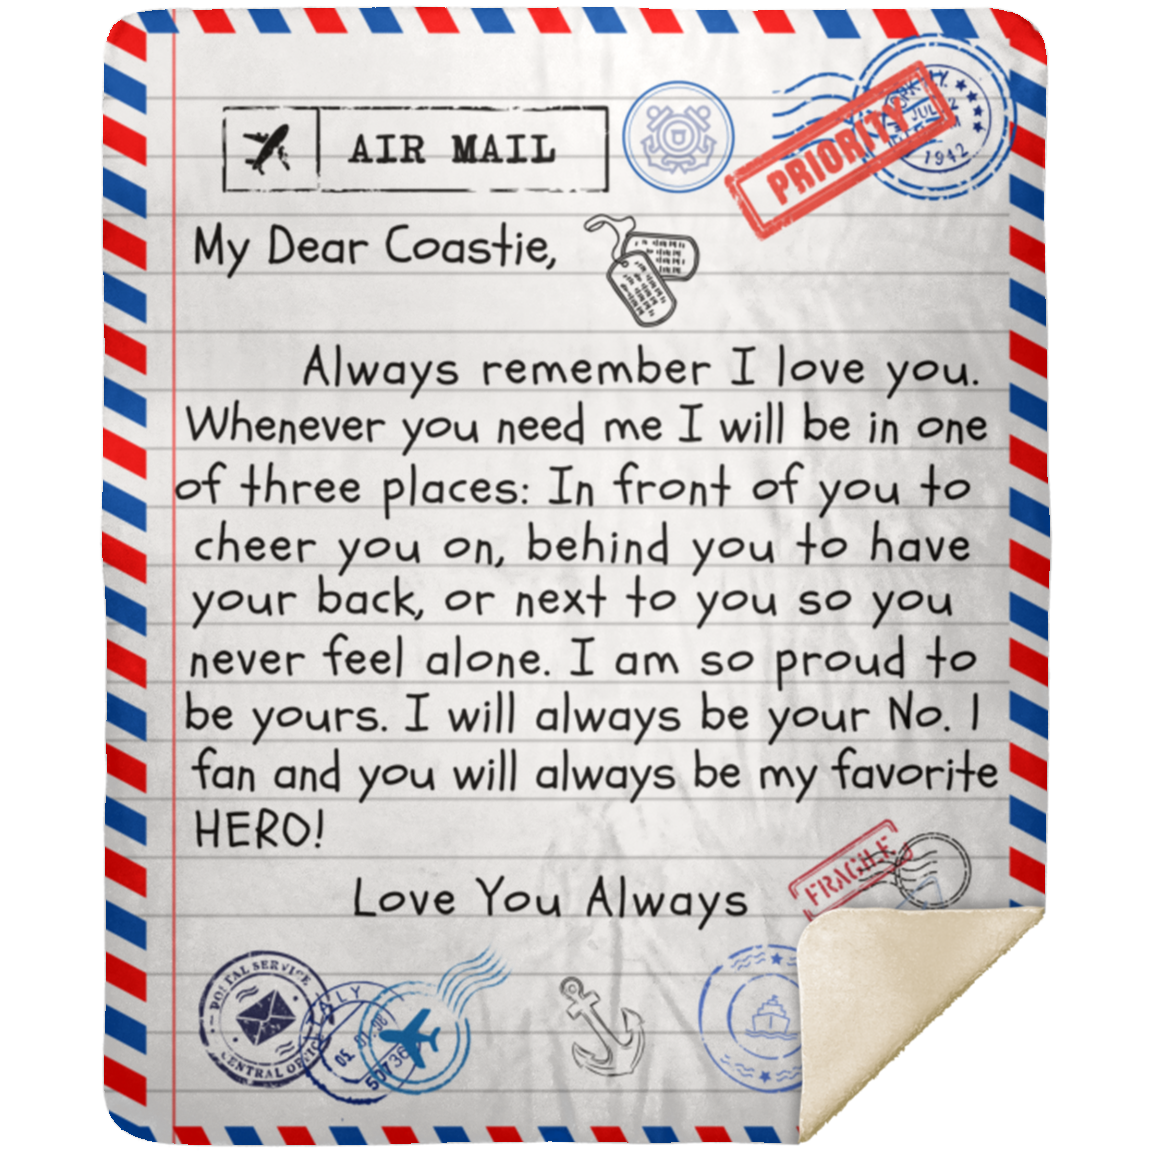 AIR MAIL
PRIORITY
1942
My Dear Coastie,
Always remember I love you.
Whenever you need me I will be in one
of three places: In front of you to
cheer you on, behind you to have
your back, or next to you so you
never feel alone. I am so proud to
be yours. I will always be your No. 1
fan and you will always be my favorite
HERO!
Love You Always
FRAGILE
POSTAL SERVICE
CENTRAL OFFICE
ITALY